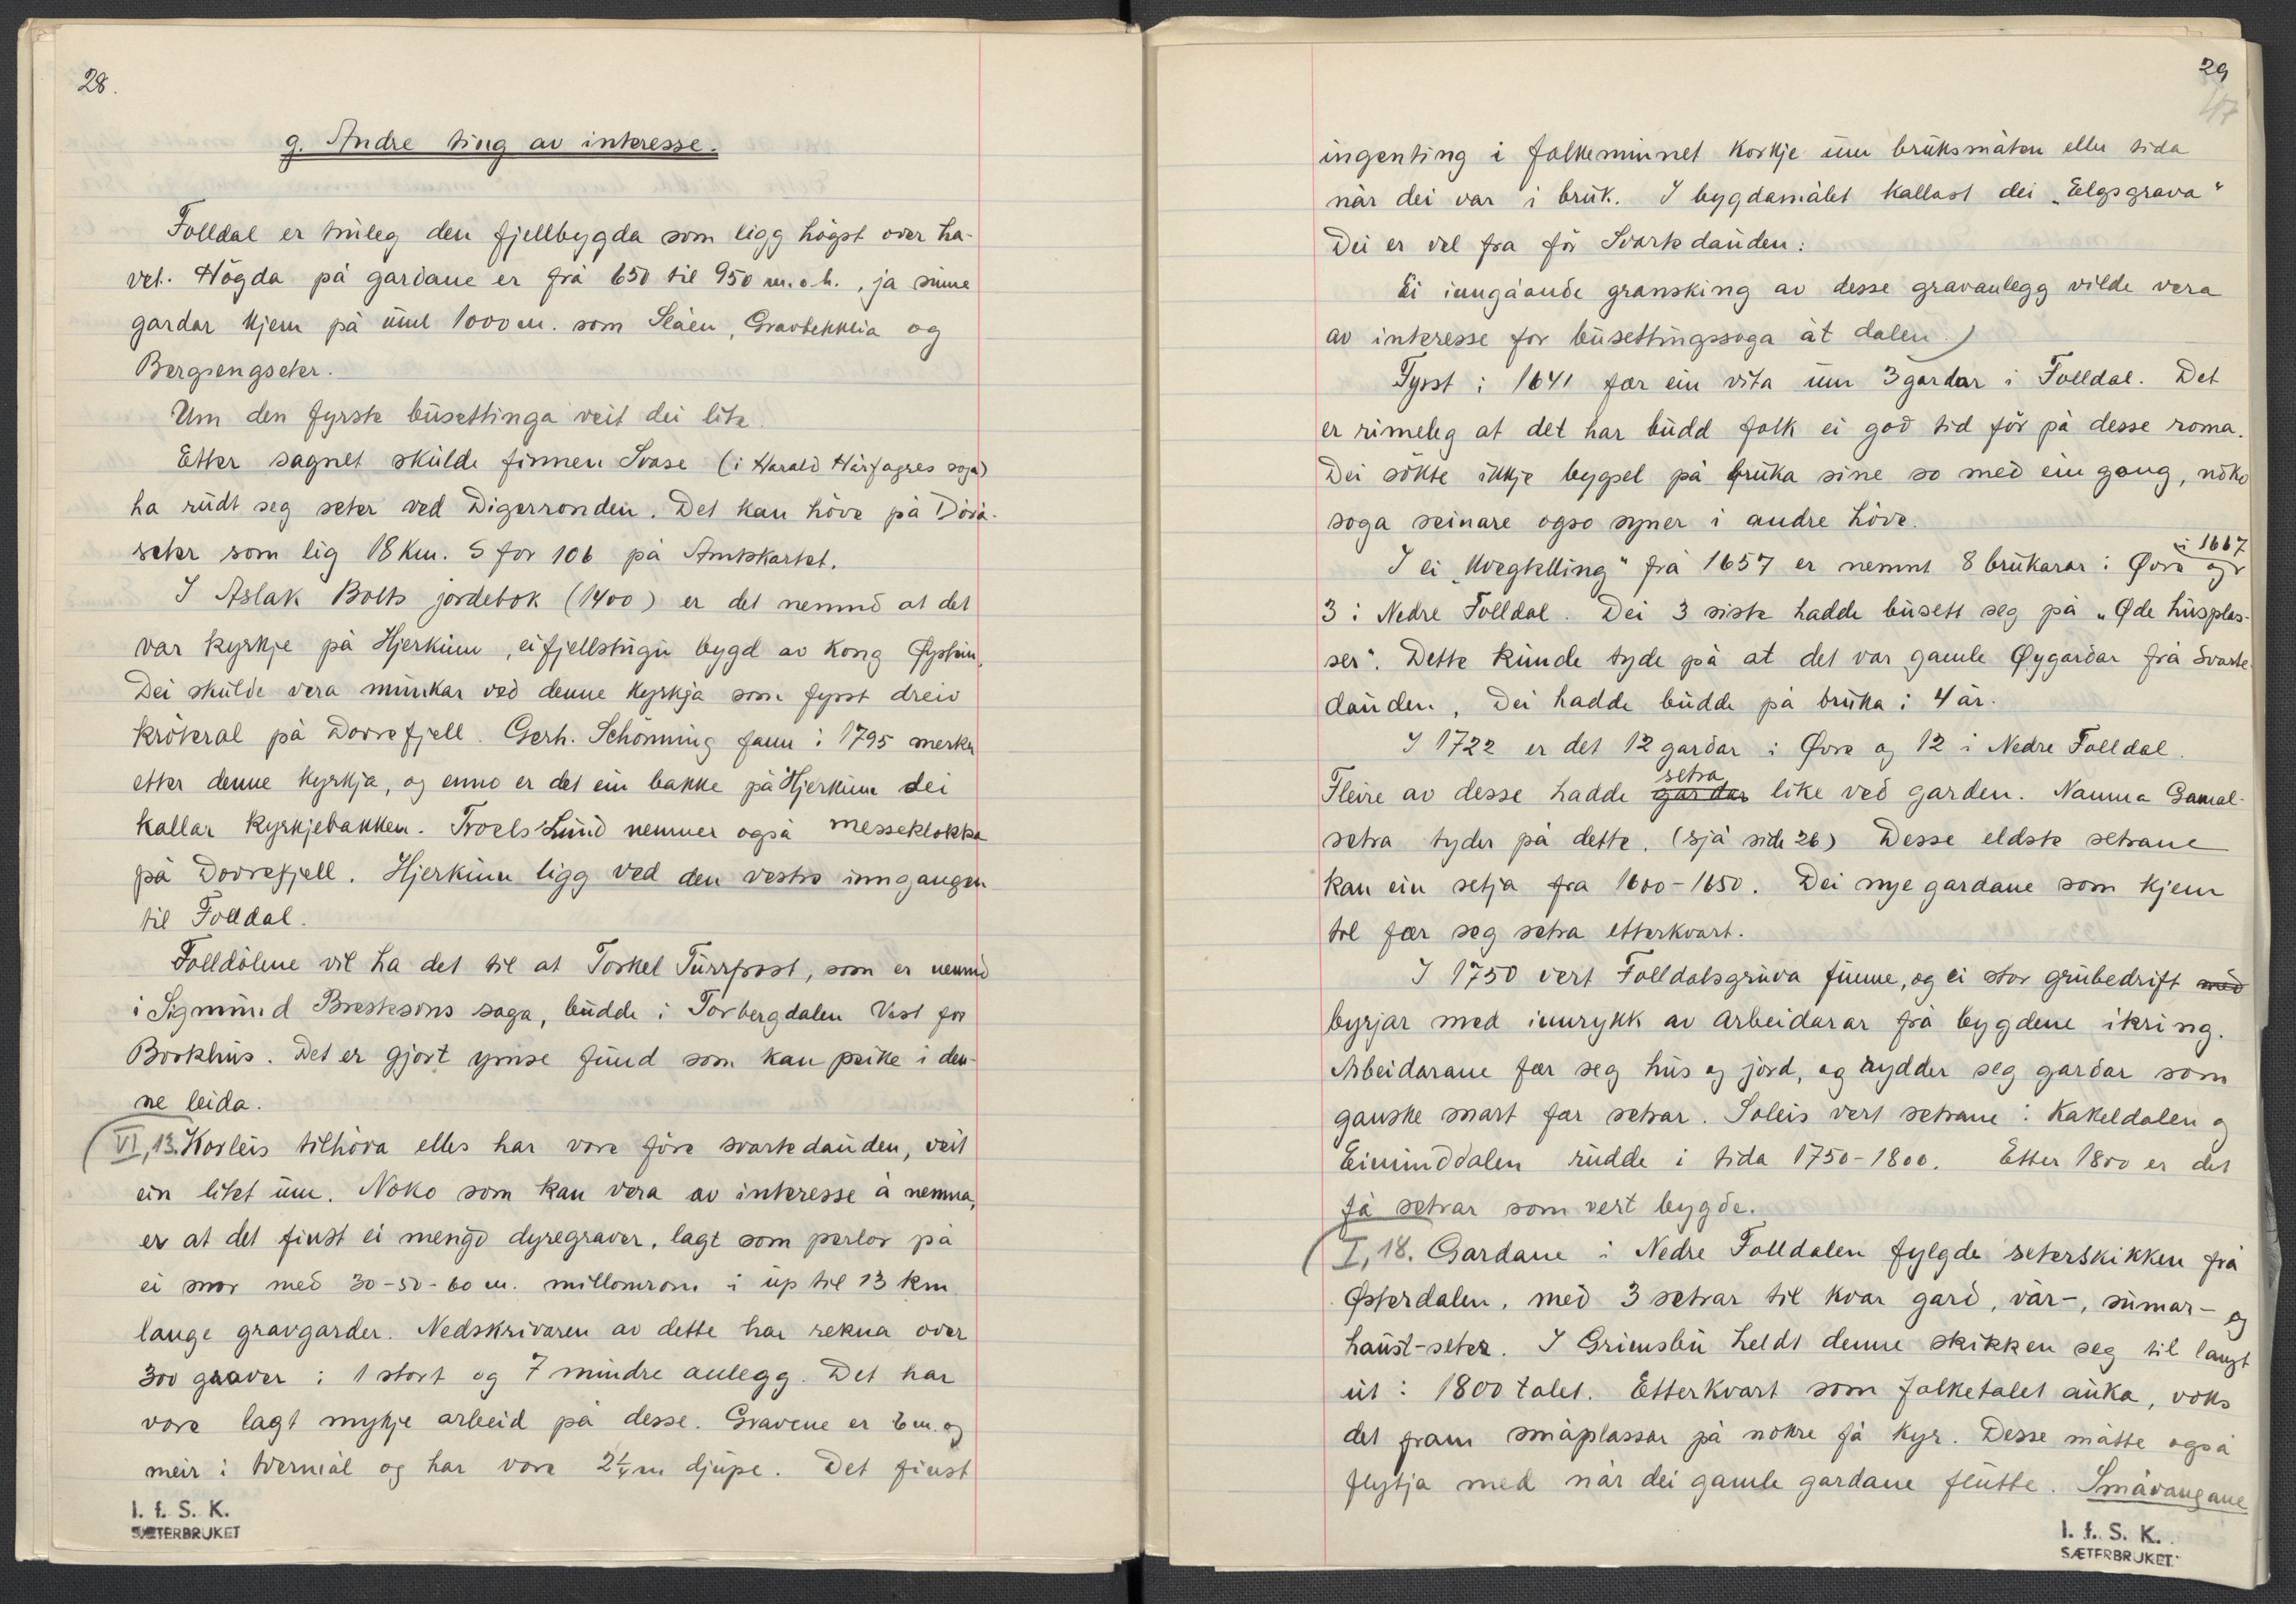 28.
g. Andre ting av interesse.
Folldal er truleg den fjellbygda som ligg högst over ha-
vet. Högda på gardane er frå 650 til 950 m.o.h., ja sume
gardar kjem på uml 1000 m. som Slåen, Gravbekklia og
Bergsengseter.
Um den fyrste busettinga veit dei lite.
Etter sagnet skulde finnen Svase (i Harald Hårfagres soga)
ha rudt seg seter ved Digerronden. Det kan höve på Döra-
seter som lig 18 km. S for 106 på Amtskartet.
I Aslak Bolts jordebok (1400) er det nemnd at det
var kyrkje på Hjerkinn, ei fjellstugu bygd av Kong Øystein,
Dei skulde vera munkar ved denne kyrkja som fyrst dreiv
kröteral på Dovrefjell. Gerh. Schönning fann i 1795 merker
etter denne kyrkja, og enno er det ein bakke på Hjerkinn dei
kallar Kyrkjebakken. Troels Lund nemner også messeklokka
på Dovrefjell. Hjerkinn ligg ved den vestre inngangen
til Folldal.
Folldölene vil ha det til at Torkel Turrfrost, som er nemnd
i Sigmund Brestesons saga, budde i Torbergdalen Vest for
Borkhus. Det er gjort ymse fund som kan peike i den-
ne leida.
(VI, 13. Korleis tilhöva elles har vore före svartedauden, veit
ein litet um. Noko som kan vera av interesse å nemna,
er at det finst ei mengd dyregraver, lagt som perlor på
ei snor med 30-50-60 m. millomrom i up til 13 km
lange gravgarder. Nedskrivaren av dette har rekna over
300 graver i 1 stort og 7 mindre anlegg. Det har
vore lagt mykje arbeid på desse. Gravene er 6 m. og
meir i tvermål og har vore 2½ m djupe. Det finst
I. f. S. K.
SÆTERBRUKET
29
47
ingenting i folkeminnet korkje um bruksmåten eller tida
når dei var i bruk. I bygdamålet kallast dei „Elgsgrava"
Dei er vel fra för Svartedauden.
Ei inngåande gransking av desse gravanlegg vilde vera
av interesse for busettingssoga åt dalen.)
Fyrst i 1641 fær ein vita um 3 gardar i Folldal. Det
er rimeleg at det har budd folk ei god tid för på desse roma.
Dei sökte ikkje bygsel på bruka sine so med ein gong, noko
soga seinare ogso syner i andre höve.
i 1667
I ei „Kvegtelling" frå 1657 er nemnt 8 brukarar i Øvre og
3 i Nedre Folldal. Dei 3 siste hadde busett seg på „Øde husplas-
ser". Dette kunde tyde på at det var gamle Øygardar frå Svarte-
dauden, Dei hadde budde på bruka i 4 år.
I 1722 er det 12 gardar i Øvre og 12 i Nedre Folldal.
setra
Fleire av desse hadde gardar like ved garden. Namna Gamal-
setra tyder på dette. (sjå side 26) Desse eldste setrane
kan ein setja fra 1600-1650. Dei nye gardane som kjem
tel fær seg setra etterkvart.
I 1750 vert Folldalsgruva funne, og ei stor grubedrift med
byrjar med innrykk av arbeidarar frå bygdene ikring.
Arbeidarane fær seg hus og jord, og rydder seg gardar som
ganske snart fær setrar. Soleis vert setrane i Kakeldalen og
Einunddalen rudde i tida 1750-1800. Etter 1800 er det
få setrar som vert bygde.
(I, 18. Gardane i Nedre Folldalen fylgde seterskikken frå
Østerdalen, med 3 setrar til kvar gard, vår-, sumar- og
haust-seter. I Grimsbu heldt denne skikken seg til langt
ut i 1800 talet. Etterkvart som folketalet auka, voks
det fram småplassar på nokre få kyr. Desse måtte også
flytja med når dei gamle gardane flutte. Småvangane
I. f. S. K.
SÆTERBRUKET